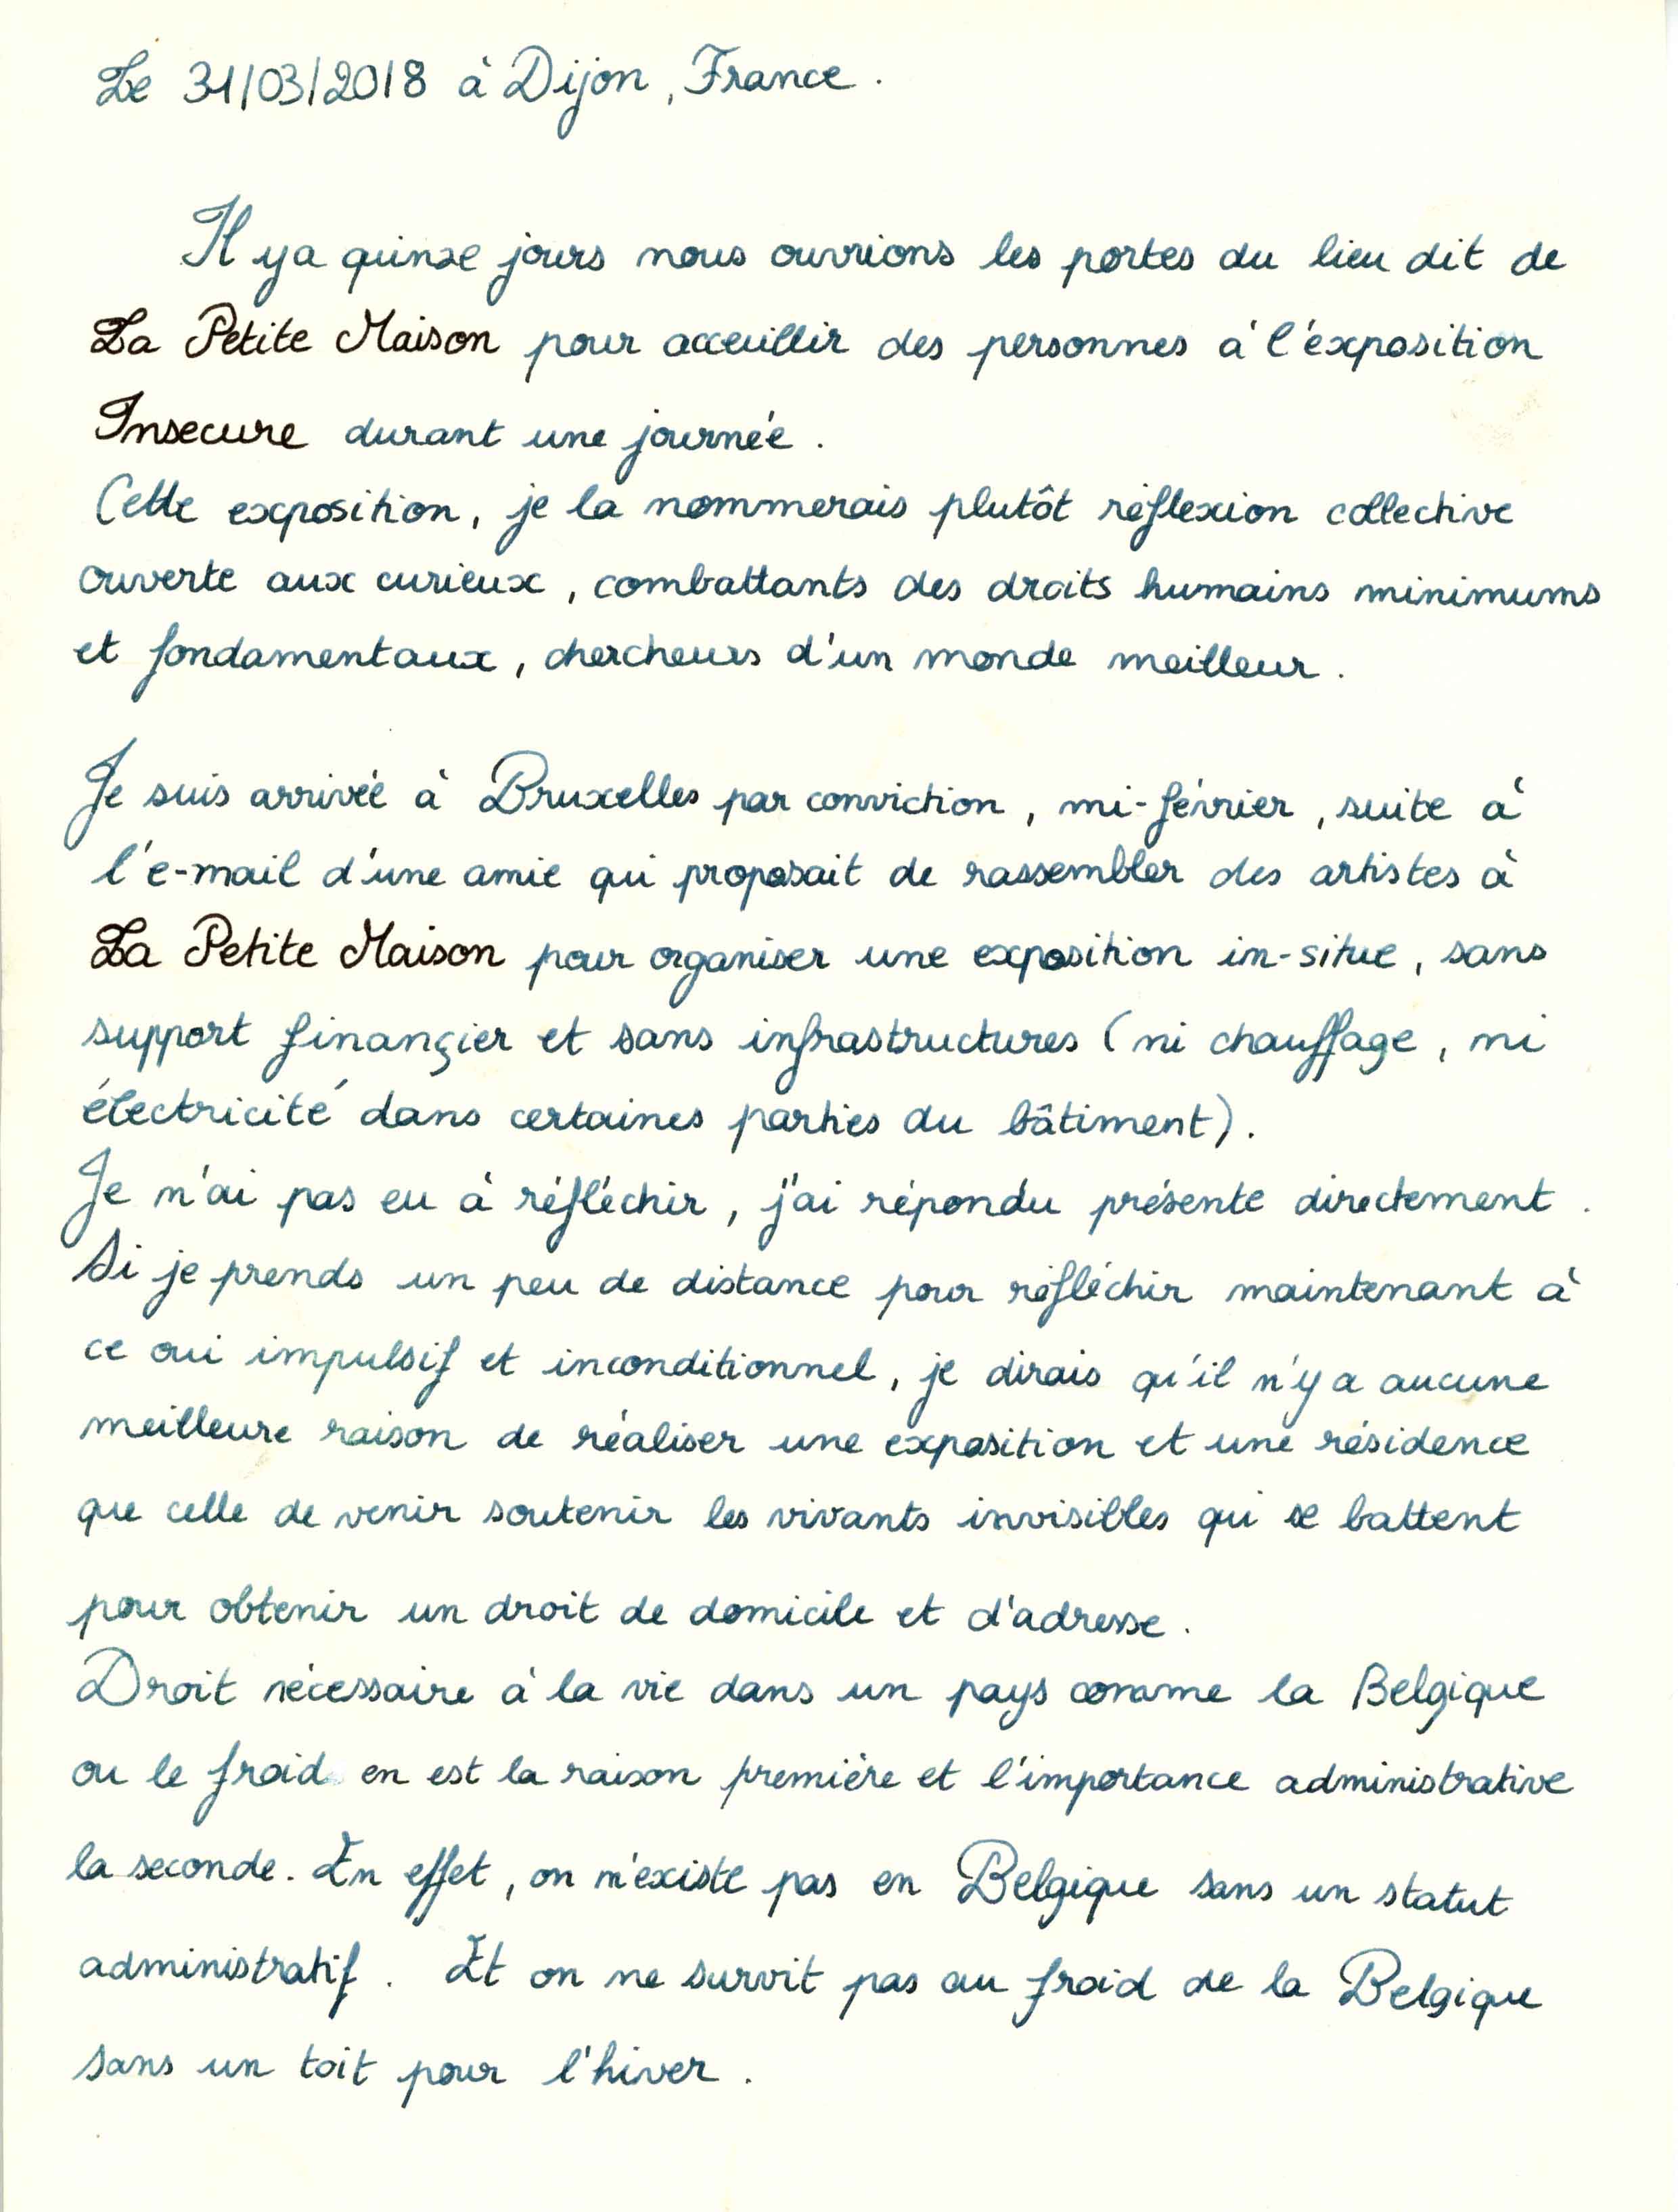 Le 31/03/2018 à Dijon, France.
Il y a quinze jours nous ouvrions les portes du lieu dit de
La Petite Maison pour acceuillir des personnes à l'éxposition
Insecure durant une journée.
Cette exposition, je la nommerais plutôt réflexion collective
ouverte aux curieux, combattants des droits humains minimums
et fondamentaux, chercheurs d'un monde meilleur.
Je suis arrivée à Bruxelles par conviction, mi-février, suite à
l'e-mail d'une amie qui proposait de rassembler des artistes à
La Petite Maison pour organiser une exposition in-situe, sans
support finançier et sans infrastructures (ni chauffage, ni
électricité dans certaines parties du bâtiment).
Je n'ai pas eu à réfléchir, j'ai répondu présente directement.
Si je prends un peu de distance pour réfléchir maintenant à
ce oui impulsif et inconditionnel, je dirais qu'il n'y a aucune
meilleure raison de réaliser une exposition et une résidence
que celle de venir soutenir les vivants invisibles qui se battent
pour obtenir un droit de domicile et d'adresse.
Droit nécessaire à la vie dans un pays comme la Belgique
ou le froid en est la raison première et l'importance administrative
la seconde. En effet, on n'existe pas en Belgique sans un statut
administratif. Et on ne survit pas au froid de la Belgique
sans un toit pour l'hiver.